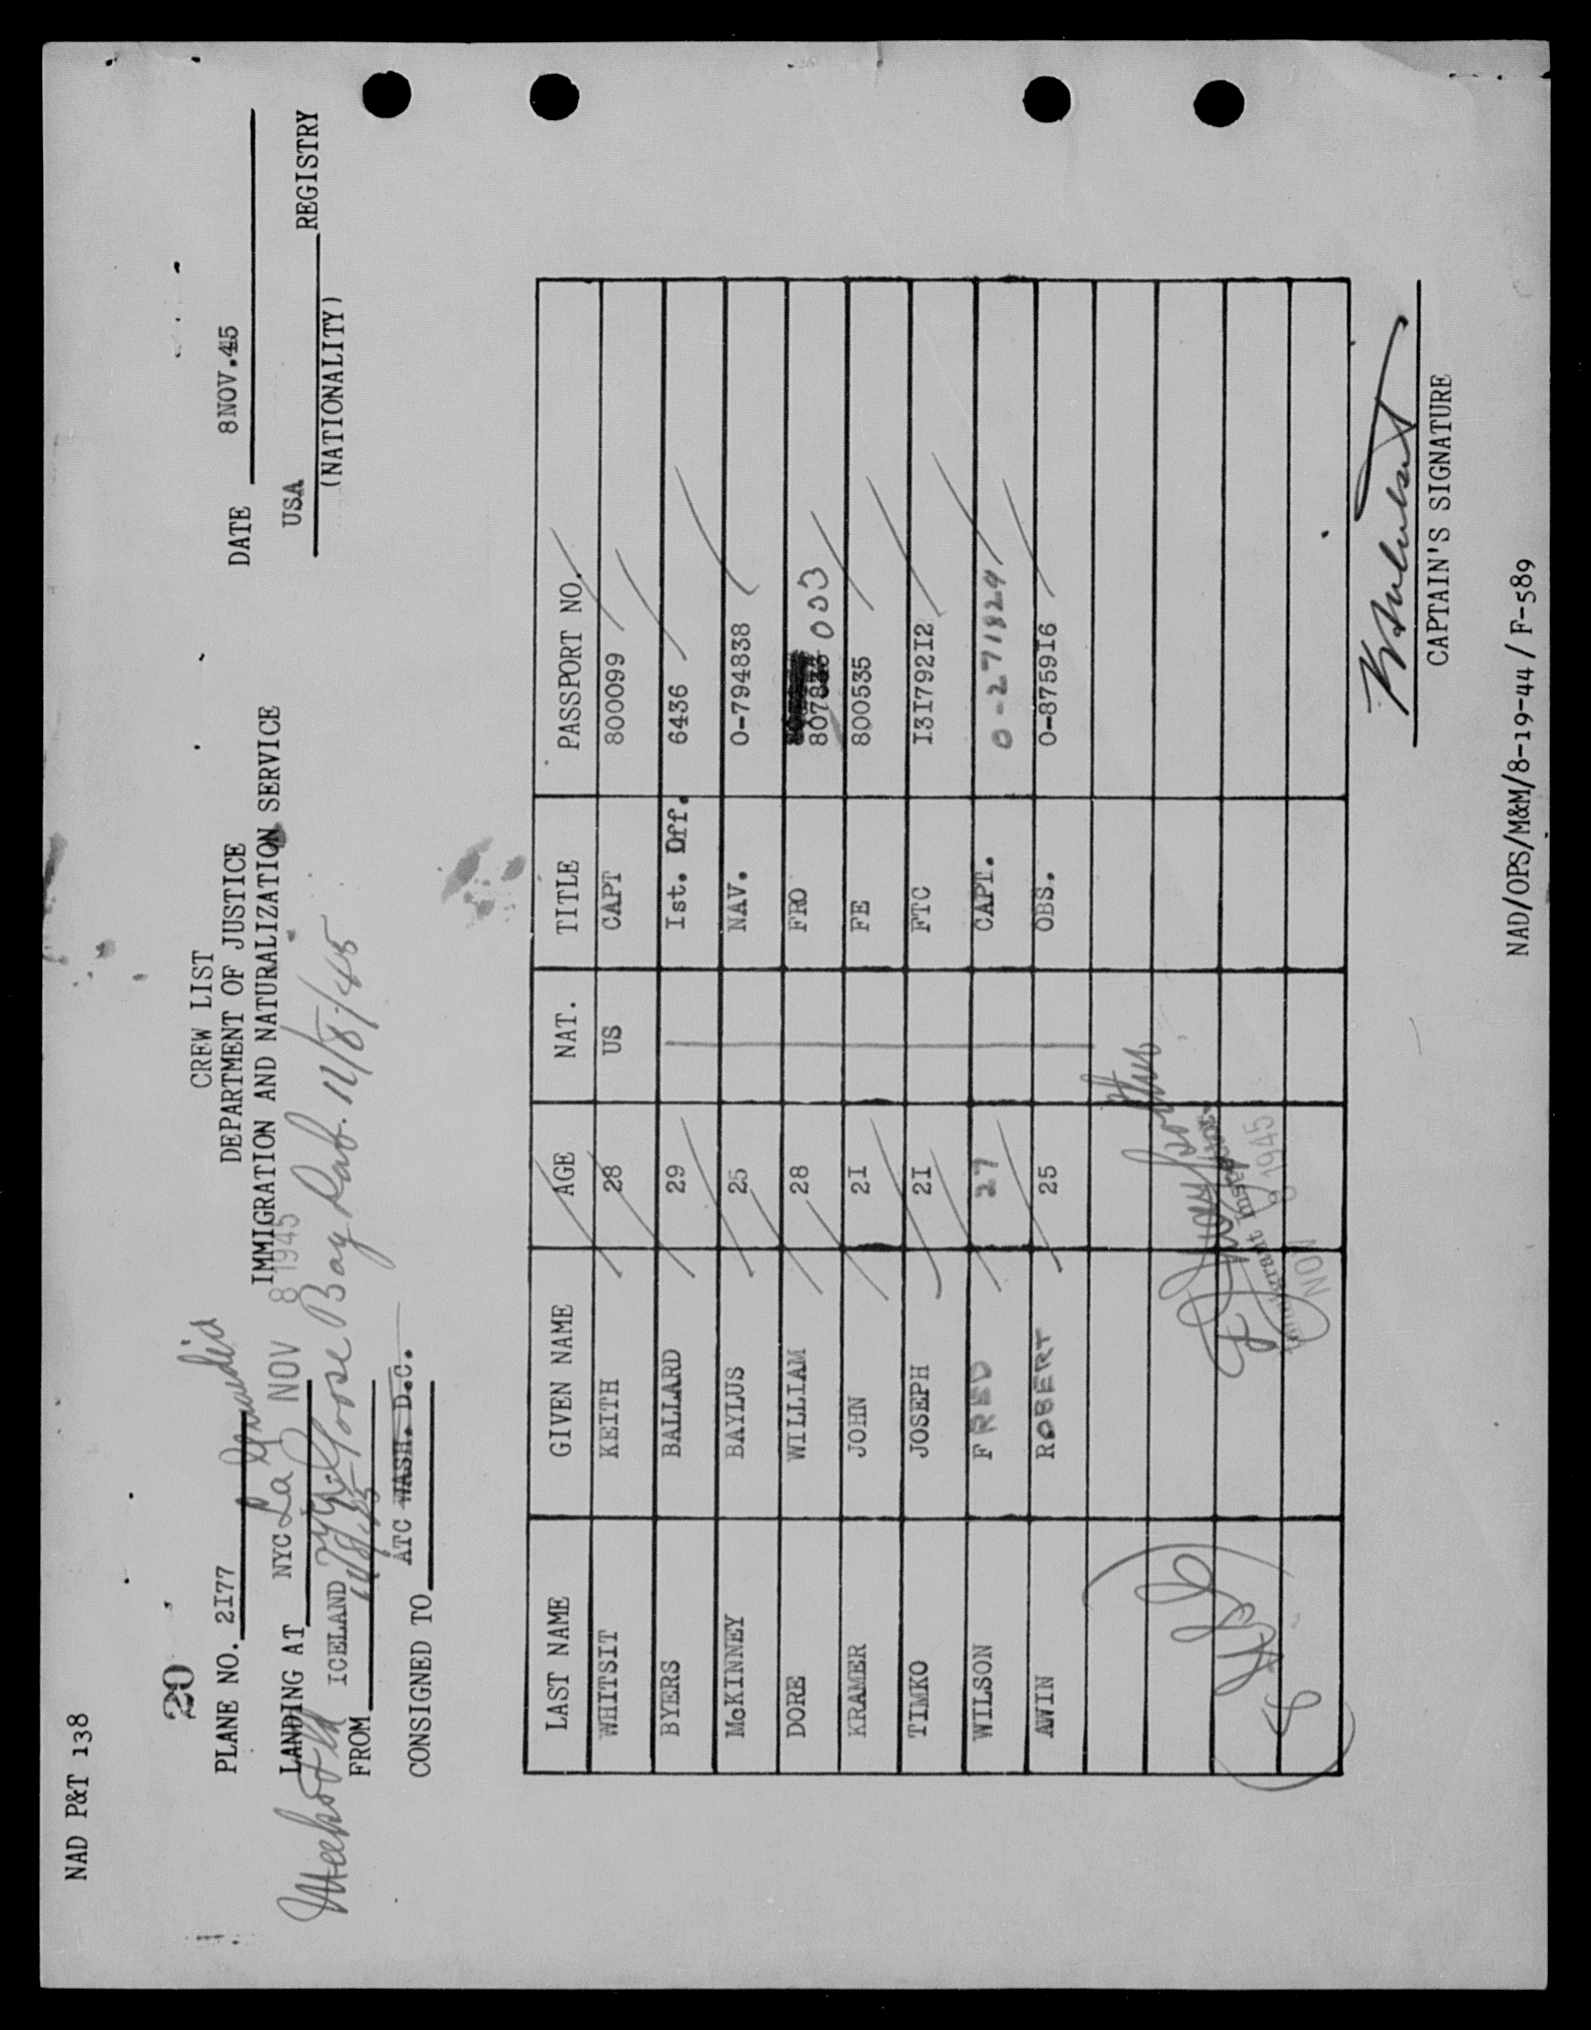 NAD P&T 138
20
CREW LIST
DEPARTMENT OF JUSTICE
IMMIGRATION AND NATURALIZATION SERVICE
PLANE NO. 2I77
DATE 8NOV.45
LANDING AT NYC La Guardia NOV 8 1945
USA REGISTRY
(NATIONALITY)
FROM ICELAND Goose Bay Lab. 11/8/45
CONSIGNED TO ATC WASH. D.C.
LAST NAME GIVEN NAME AGE NAT. TITLE PASSPORT NO.
WHITSIT KEITH 28 US CAPT 800099
BYERS BALLARD 29 Ist. Off. 6436
McKINNEY BAYLUS 25 NAV. 0-794838
DORE WILLIAM 28 FRO 003
KRAMER JOHN 2I FE 800535
TIMKO JOSEPH 2I FTC I3I792I2
WILSON FRED 27 CAPT. 0-271829
AWIN ROBERT 25 OBS. 0-8759I6
8
Immigrant Inspector
NOV 8 1945
CAPTAIN'S SIGNATURE
NAD/OPS/M&M/8-19-44/F-589